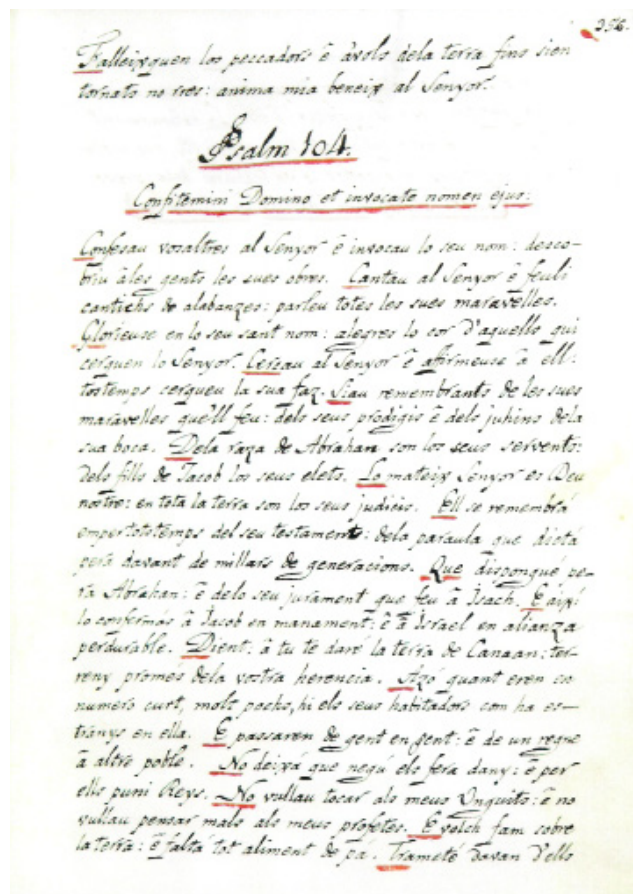 356.
Falleixquen los pecadors ē ávols dela terra fins sien
tornats no rres: anima mia beneix al Senyor.
Psalm 104.
Confitemini Domino et invocate nomen ejus:
Confesau vosaltres al Senyor ē invocau lo seu nom: desco-
briu á les gents les sues obres. Cantau al Senyor ē feuli
cantichs de alabanzes: parleu totes les sues maravelles.
Glorieuse en lo seu sant nom: alegres lo cor d'aquells qui
cerquen lo Senyor. Cercau al Senyor ē affirmeuse ā ell:
tostemps cerqueu la sua faz. Siau remembrants de les sues
maravelles que'll feu: dels seus prodigis ē dels juhins dela
sua boca. Dela raza de Abrahan son los seus servents:
dels fills de Jacob los seus elets. Lo mateix Senyor es Deu
nostre: en tota la terra son los seus judicis. Ell se remembrá
empertotstemps del seu testament: dela paraula que dictá
perá davant de millars de generacions. Que disponqué pe-
rá Abrahan: ē dels seu jurament que feu ā Isach. E aixi
lo confermás ā Jacob en manament: ē ā Israel en alianza
perdurable. Dient: ā tu te daré la terra de Canaan: ter-
reny promés dela vostra herencia. Azó quant eren en
numero curt, molt pochs, hi els seus habitadors com ha es-
tranys en ella. E passaren de gent en gent: ē de un regne
ā altre poble. No deixá que negú els fera dany: ē per
ells puni Reys. No vullau tocar als meus Unguits: ē no
vullau pensar mals als meus profetes. E volch fam sobre
la terra: ē faltá tot aliment de pá. Trameté davan d'ells